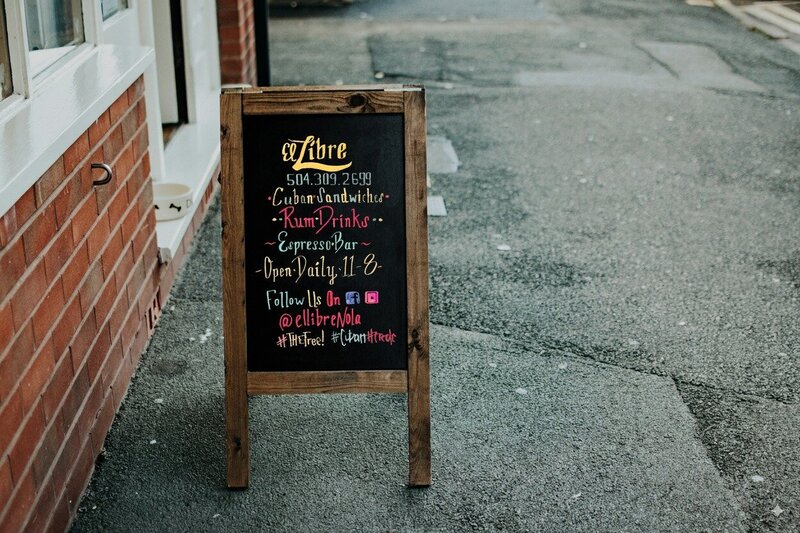 El Libre
504.309.2699
Cuban Sandwiches
Rum Drinks
Espresso Bar
Open Daily 11-8
Follow Us On
@ellibreNola
#THETree! #Cuban